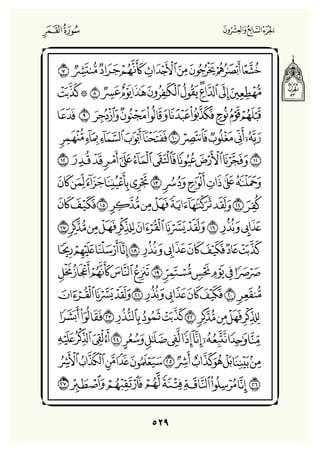 الجُزْءُ السَّابِعُ وَالعِشْرُونَ
سُورَةُ القَمَرِ
خُشَّعًا أَبْصَٰرُهُمْ يَخْرُجُونَ مِنَ ٱلْأَجْدَاثِ كَأَنَّهُمْ جَرَادٌ مُّنتَشِرٌ ٧
مُّهْطِعِينَ إِلَى ٱلدَّاعِ يَقُولُ ٱلْكَٰفِرُونَ هَٰذَا يَوْمٌ عَسِرٌ ٨ ۞ كَذَّبَتْ
قَبْلَهُمْ قَوْمُ نُوحٍ فَكَذَّبُوا۟ عَبْدَنَا وَقَالُوا۟ مَجْنُونٌ وَٱزْدُجِرَ ٩ فَدَعَا
رَبَّهُۥٓ أَنِّى مَغْلُوبٌ فَٱنتَصِرْ ١٠ فَفَتَحْنَآ أَبْوَٰبَ ٱلسَّمَآءِ بِمَآءٍ مُّنْهَمِرٍ
١١ وَفَجَّرْنَا ٱلْأَرْضَ عُيُونًا فَٱلْتَقَى ٱلْمَآءُ عَلَىٰٓ أَمْرٍ قَدْ قُدِرَ ١٢
وَحَمَلْنَٰهُ عَلَىٰ ذَاتِ أَلْوَٰحٍ وَدُسُرٍ ١٣ تَجْرِى بِأَعْيُنِنَا جَزَآءً لِّمَن كَانَ
كُفِرَ ١٤ وَلَقَد تَّرَكْنَٰهَآ ءَايَةً فَهَلْ مِن مُّدَّكِرٍ ١٥ فَكَيْفَ كَانَ
عَذَابِى وَنُذُرِ ١٦ وَلَقَدْ يَسَّرْنَا ٱلْقُرْءَانَ لِلذِّكْرِ فَهَلْ مِن مُّدَّكِرٍ ١٧
كَذَّبَتْ عَادٌ فَكَيْفَ كَانَ عَذَابِى وَنُذُرِ ١٨ إِنَّآ أَرْسَلْنَا عَلَيْهِمْ رِيحًا
صَرْصَرًا فِى يَوْمِ نَحْسٍ مُّسْتَمِرٍّ ١٩ تَنزِعُ ٱلنَّاسَ كَأَنَّهُمْ أَعْجَازُ نَخْلٍ
مُّنقَعِرٍ ٢٠ فَكَيْفَ كَانَ عَذَابِى وَنُذُرِ ٢١ وَلَقَدْ يَسَّرْنَا ٱلْقُرْءَانَ
لِلذِّكْرِ فَهَلْ مِن مُّدَّكِرٍ ٢٢ كَذَّبَتْ ثَمُودُ بِٱلنُّذُرِ ٢٣ فَقَالُوٓا۟ أَبَشَرًا
مِّنَّا وَٰحِدًا نَّتَّبِعُهُۥٓ إِنَّآ إِذًا لَّفِى ضَلَٰلٍ وَسُعُرٍ ٢٤ أَءُلْقِىَ ٱلذِّكْرُ عَلَيْهِ
مِنۢ بَيْنِنَا بَلْ هُوَ كَذَّابٌ أَشِرٌ ٢٥ سَيَعْلَمُونَ غَدًا مَّنِ ٱلْكَذَّابُ ٱلْأَشِرُ
٢٦ إِنَّا مُرْسِلُوا۟ ٱلنَّاقَةِ فِتْنَةً لَّهُمْ فَٱرْتَقِبْهُمْ وَٱصْطَبِرْ ٢٧
٥٢٩